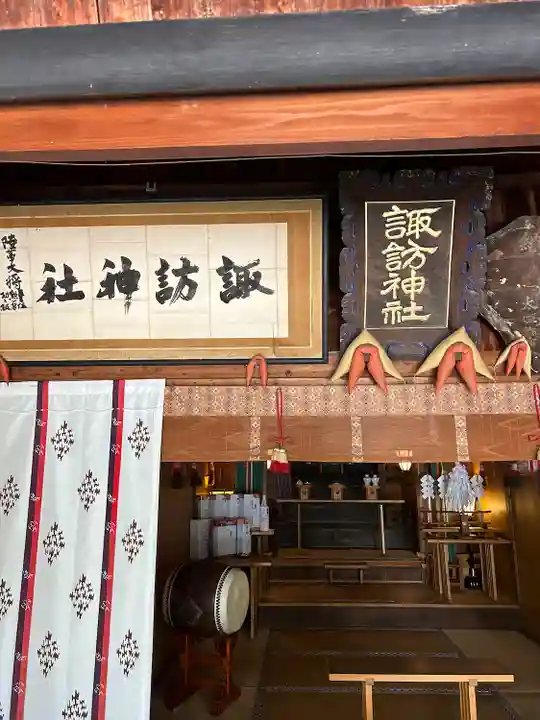 諏訪神社
陸軍大将
諏訪神社